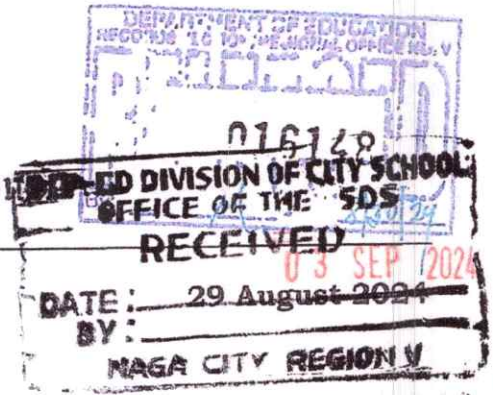 DEPARTMENT OF EDUCATION
RECORDS
OFFICE NO. V
016148
DIVISION OF CITY SCHOOLS
OFFICE OF THE SDS
8/30/24
RECEIVED
03 SEP 2024
DATE: 29 August 2024
BY:
NAGA CITY REGION V